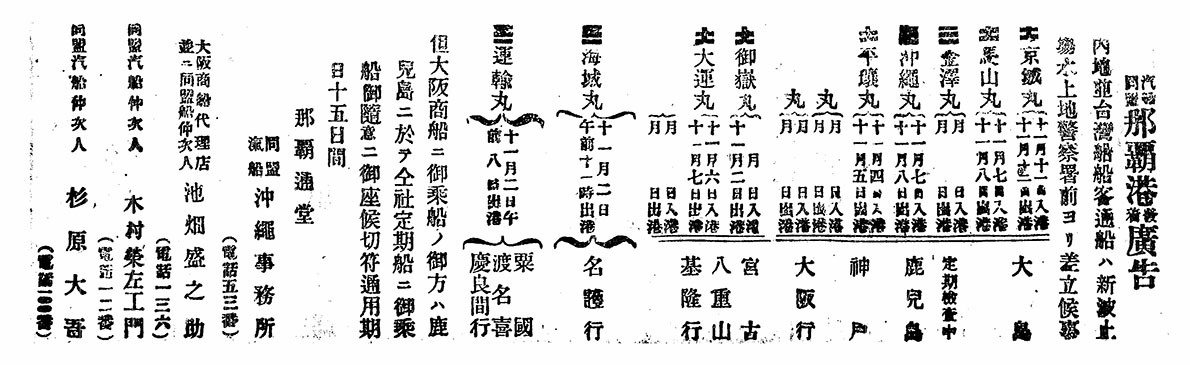 同盟汽船那覇港發着廣告
內地並台灣船船客通船ハ新波止
塲水上地警察署前ヨリ差立候事
大京城丸
馬山丸 十一月七日入港 十一月八日出港
三金澤丸 月日入港 月日出港 定期檢查中
大島
沖繩丸 十一月七日入港 十一月八日出港
大平壤丸 十一月四日入港 十一月五日出港
鹿兒島
神戶
大阪行
丸 月日入港 月日出港
丸 月日入港 月日出港
大御嶽丸 月日入港 十一月二日出港
大大運丸 十一月六日入港 十一月七日出港
宮古
八重山
基隆行
三海城丸 十一月二日午前十一時出港 名護行
三運輸丸 十一月二日午前八時出港 粟國 渡名喜 慶良間行
但大阪商船ニ御乘船ノ御方ハ鹿
兒島ニ於テ仝社定期船ニ御乘
船御隨意ニ御座候切符通用期
日十五日間
那覇通堂
同盟汽船 沖繩事務所
(電話五三番)
大阪商船代理店並ニ同盟船仲次人 池畑盛之助
(電話一三六)
同盟汽船仲次人 木村榮左工門
(電話一二番)
同盟汽船仲次人 杉原大吾